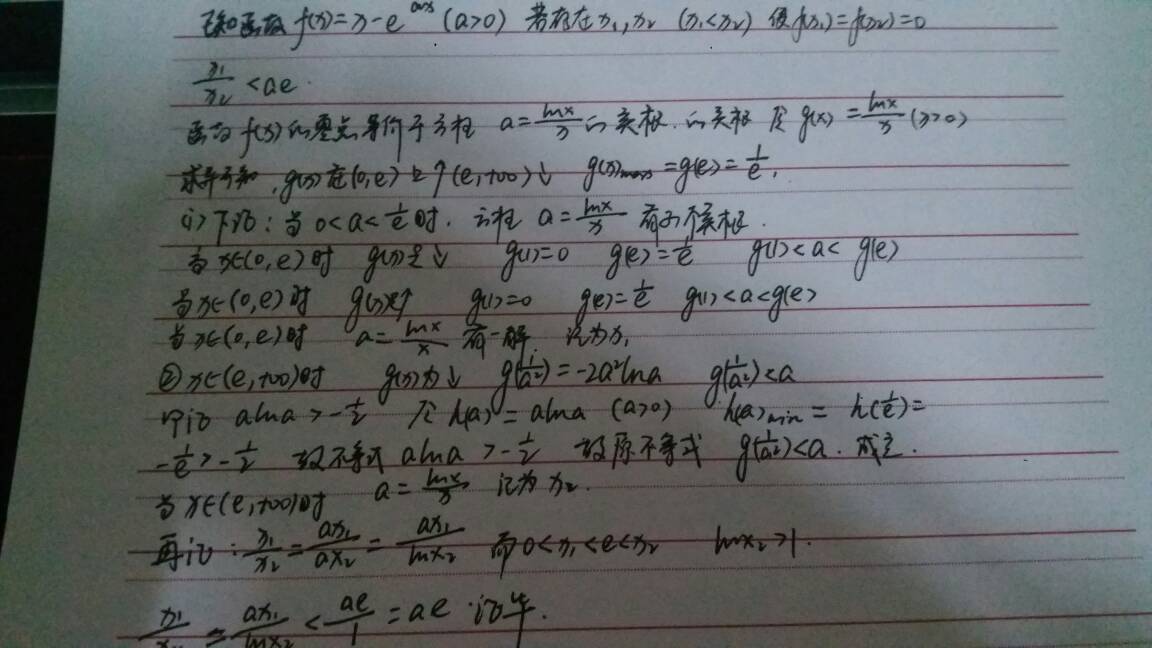 已知函数 f(x)=x-e^{ax} (a>0) 若存在x₁,x₂ (x₁<x₂) 使f(x₁)=f(x₂)=0
x₁/x₂ <ae.
函数f(x)的零点等价于方程 a=lnx/x的实根.的实根 令g(x)=lnx/x(x>0)
求导可知,g(x)在(0,e)上↑(e,+∞)↓ g(x)max=g(e)=1/e,
(1)下证:当0<a<1/e时.方程 a=lnx/x 有两不等实根.
当x∈(0,e)时 g(x)是↓ g(1)=0 g(e)=1/e g(1)<a<g(e)
当x∈(0,e)时 g(x)是↑ g(1)=0 g(e)=1/e g(1)<a<g(e)
当x∈(0,e)时 a=lnx/x 有一解 记为x₁
②x∈(e,+∞)时 g(x)为↓ g(1/a²)=-2a²lna g(1/a²)<a
即证 alna>-1/2 令h(a)=alna (a>0) h(a)min=h(1/e)=
-1/e>-1/2 故不等式 alna>-1/2 故原不等式 g(1/a²)<a.成立.
当x∈(e,+∞)时 a=lnx/x 记为x₂.
再证:x₁/x₂=ax₁/ax₂=ax₁/lnx₂ 而0<x₁<e<x₂ lnx₂>1.
x₁/x₂=ax₁/lnx₂<ae/1=ae.证毕.